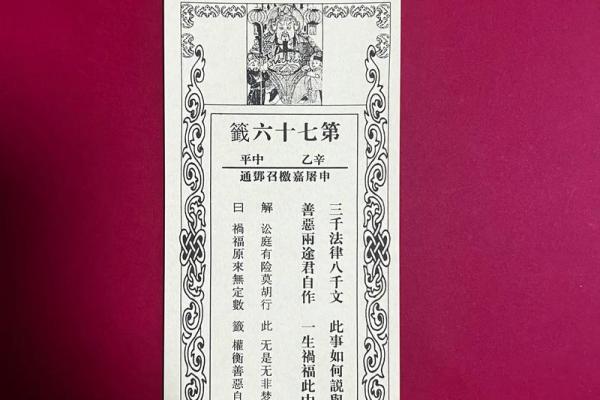 第七十六籤
辛乙 中平
申屠嘉檄召鄧通
三千法律八千文 此事如何説與
善惡兩途君自作 一生禍福此中
解 讼庭有险莫胡行 此 无是无非梦
曰 禍福原來無定數 籤 權衡善惡自